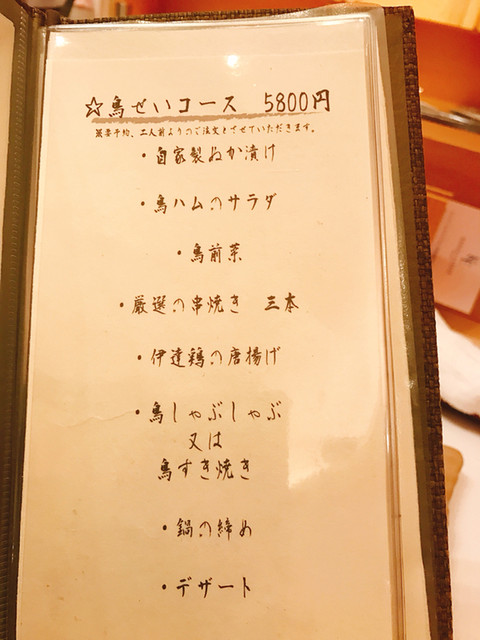 ☆鳥せいコース 5800円
二人前よりのご注文とさせていただきます。
・自家製ぬか漬け
・鳥ハムのサラダ
・鳥前菜
・厳選の串焼き 三本
・伊達鶏の唐揚げ
・鳥しゃぶしゃぶ
又は
鳥すき焼き
・鍋の締め
・デザート